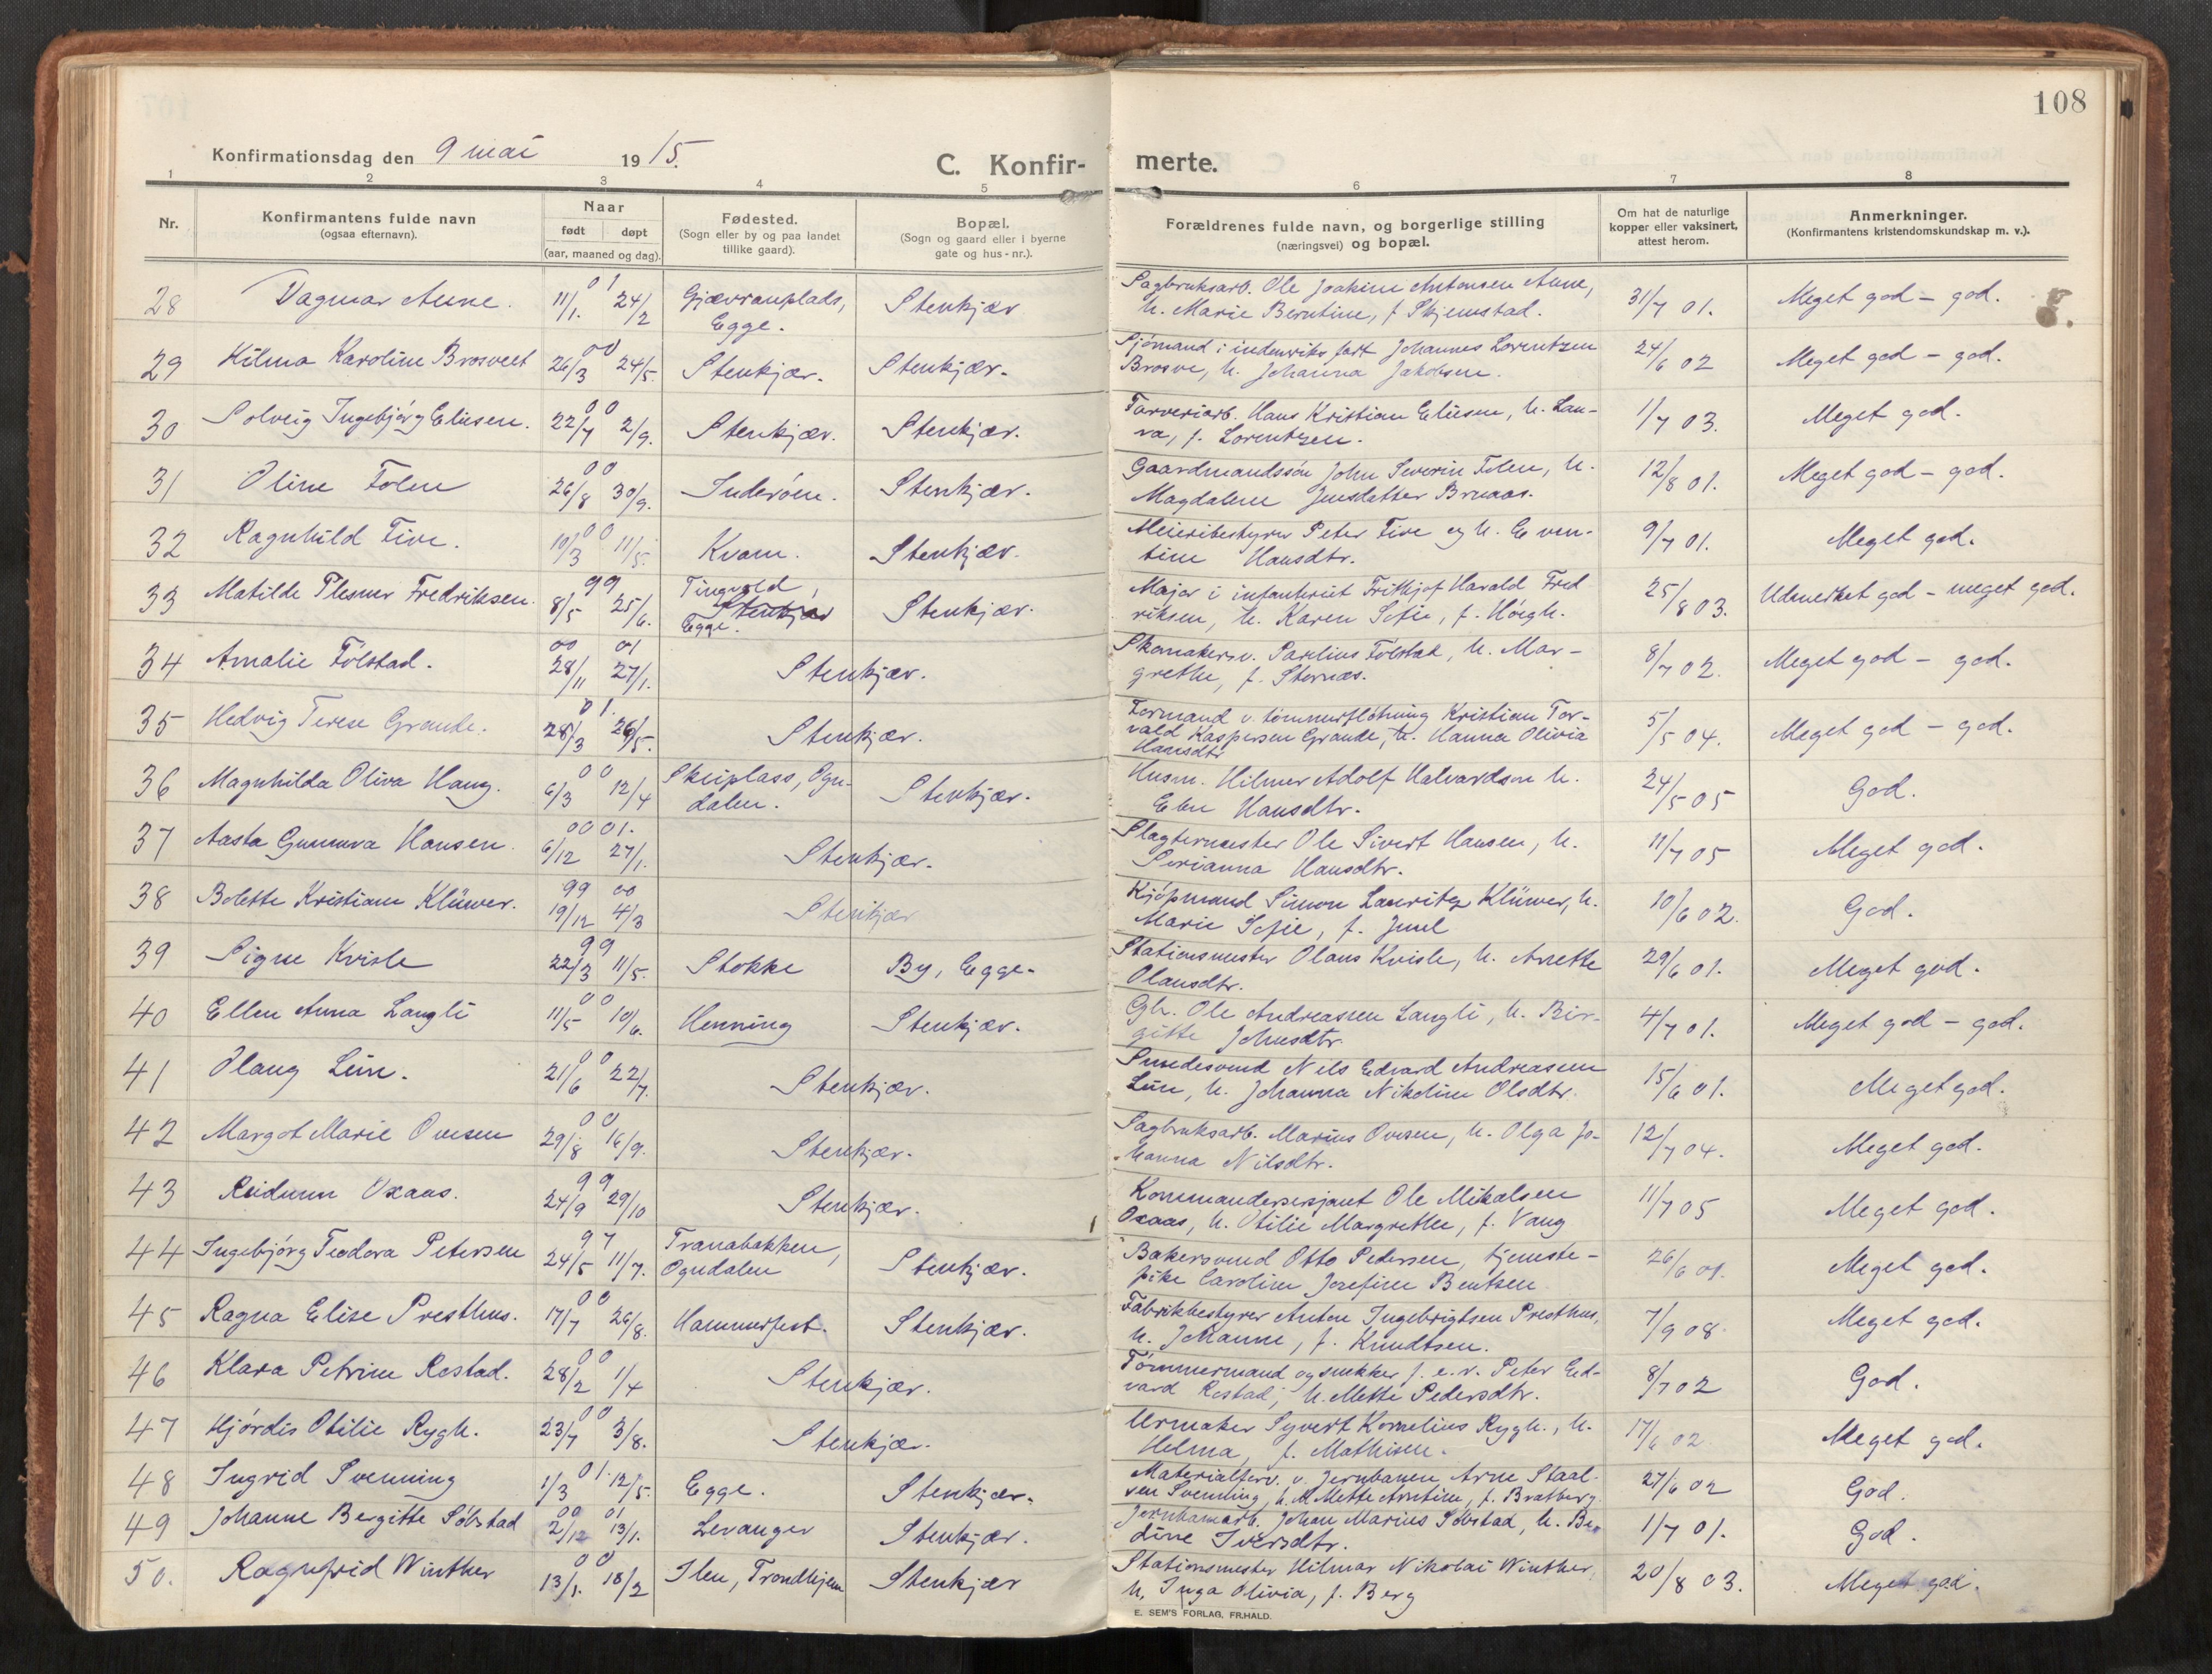 108
Konfirmationsdag den 9 mai 1915.
C. Konfirmerte.
1 2 3 4 5 6 7 8
Nr.
Konfirmantens fulde navn
(ogsaa efternavn).
Naar
født døpt
(aar, maaned og dag).
Fødested.
(Sogn eller by og paa landet
tillike gaard).
Bopæl.
(Sogn og gaard eller i byerne
gate og hus-nr.).
Forældrenes fulde navn, og borgerlige stilling
(næringsvei) og bopæl.
Om hat de naturlige
kopper eller vaksinert,
attest herom.
Anmerkninger.
(Konfirmantens kristendomskundskap m. v.).
28 Dagmar Aune. 01 11/1. 24/2 Gjævranplads, Egge. Stenkjær Sagbruksarb. Ole Joakim Antonsen Aune,
h. Marie Berntine, f. Skjemstad. 31/7 01. Meget god - god.
29 Hilma Karoline Brosveet 00 26/3 24/5. Stenkjær. Stenkjær. Sjömand i indenriks fart Johannes Lorentzen
Brosve, h. Johanna Jakobsen. 24/6 02 Meget god - god.
30 Solveig Ingebjörg Eliesen. 00 22/7 2/9. Stenkjær. Stenkjær. Farveriarb. Hans Kristian Eliesen, h. Lau-
ra, f. Lorentzen. 1/7 03. Meget god.
31 Oline Folen 00 26/8 30/9. Inderöen. Stenkjær. Gaardmandssön John Severin Folen, h.
Magdalene Jensdatter Bruaas. 12/8 01. Meget god - god.
32 Ragnhild Five. 00 10/3 11/5. Kvam. Stenkjær. Meieribestyrer Peter Five og h. Even-
tine Hansdtr. 9/7 01. Meget god.
33 Matilde Plesner Fredriksen. 99 8/5 25/6. Tingvold, Stenkjær Egge. Stenkjær. Major i infanteriet Fritkjof Harald Fred
riksen, h. Karen Sofie, f. Höegh. 25/8 03. Udmerket god - meget god.
34 Amalie Fölstad. 00 01 28/11 27/1. Stenkjær. Skomakersv. Paulius Fölstad, h. Mar-
grethe, f. Sternæs. 8/7 02. Meget god - god.
35 Hedvig Terese Grande. 01. 28/3 26/5. Stenkjær. Formand v. tømmerflötning Kristian Tor-
vald Kaspersen Grande, h. Hanna Olivia
Hansdtr 5/5 04. Meget god - god.
36 Magnhilda Oliva Haug. 00 6/3 12/4 Skeiplass, Ogn-
dalen. Stenkjær. Husm. Hilmer Adolf Halvardsen h.
Elen Hansdtr. 24/5 05 God.
37 Aasta Gunnova Hansen. 00 01. 6/12 27/1. Stenkjær. Slagtermester Ole Sivert Hansen, h.
Serianna Hansdtr. 11/7 05 Meget god.
38 Bolette Kristiane Klüwer. 99 00 19/12 4/3 Stenkjær Kjöpmand Simon Lauritz Klüwer, h.
Marie Sofie, f. Juul 10/6 02. God.
39 Signe Kvisle 99 22/3 11/5. Stokke By, Egge. Stationsmester Olaus Kvisle, h. Anette
Olausdtr. 29/6 01. Meget god.
40 Ellen Anna Langli 00 11/5 10/6. Henning Stenkjær. Gbr. Ole Andreassen Langli, h. Bir-
gitte Johnsdtr. 4/7 01. Meget god - god.
41 Olaug Lein. 00 21/6 22/7. Stenkjær. Smedesvend Nils Edvard Andreassen
Lein, h. Johanna Nikoline Olsdtr. 15/6 01. Meget god.
42 Margot Marie Ovesen 00 29/8 16/9. Stenkjær. Sagbruksarb. Marius Ovesen, h. Olga Jo-
hanna Nilsdtr. 12/7 04. Meget god.
43 Reidunn Oxaas. 99 24/9 29/10 Stenkjær. Kommandersersjant Ole Mikalsen
Oxaas, h. Otilie Margrethe, f. Vang 11/7 05 Meget god.
44 Ingebjörg Teodora Petersen 97 24/5 11/7. Tranabakken,
Ogndalen Stenkjær. Bakersvend Otto Pedersen, tjeneste-
pike Caroline Josefine Bentzen 26/6 01. Meget god.
45 Ragna Elise Presthus. 00 17/7 26/8. Hammerfest. Stenkjær. Fabrikbestyrer Anton Ingebrigtsen Presthus,
h. Johanne, f. Knudtsen. 7/9 08. Meget god.
46 Klara Petrine Restad. 00 28/2 1/4 Stenkjær. Tömmermand og snekker f. e. r. Peter Ed-
vard Restad, h. Mette Pedersdtr. 8/7 02 God.
47 Hjördis Otilie Rygh. 00 23/7 3/8. Stenkjær. Urmaker Syvert Kornelius Rygh., h.
Helma, f. Mathisen. 17/6 02 Meget god.
48 Ingrid Svenning 01. 1/3 12/5. Egge. Stenkjær. Materialforv. v. Jernbanen Arne Staal-
sen Svenning, h. M Mette Arntine, f. Bratberg 27/6 02 God.
49 Johanne Bergitte Söbstad 00 01 2/12 13/1. Levanger Stenkjær. Jernbanearb. Johan Marius Söbstad, h. Be-
dine Iversdtr. 1/7 01. God.
50. Ragnfrid Winther 00 13/1. 18/2 Ilen, Trondhjem Stenkjær Stationsmester Hilmar Nikolai Winther,
h. Inga Olivia, f. Berg 20/8 03. Meget god.
E. SEM'S FORLAG, FR.HALD.